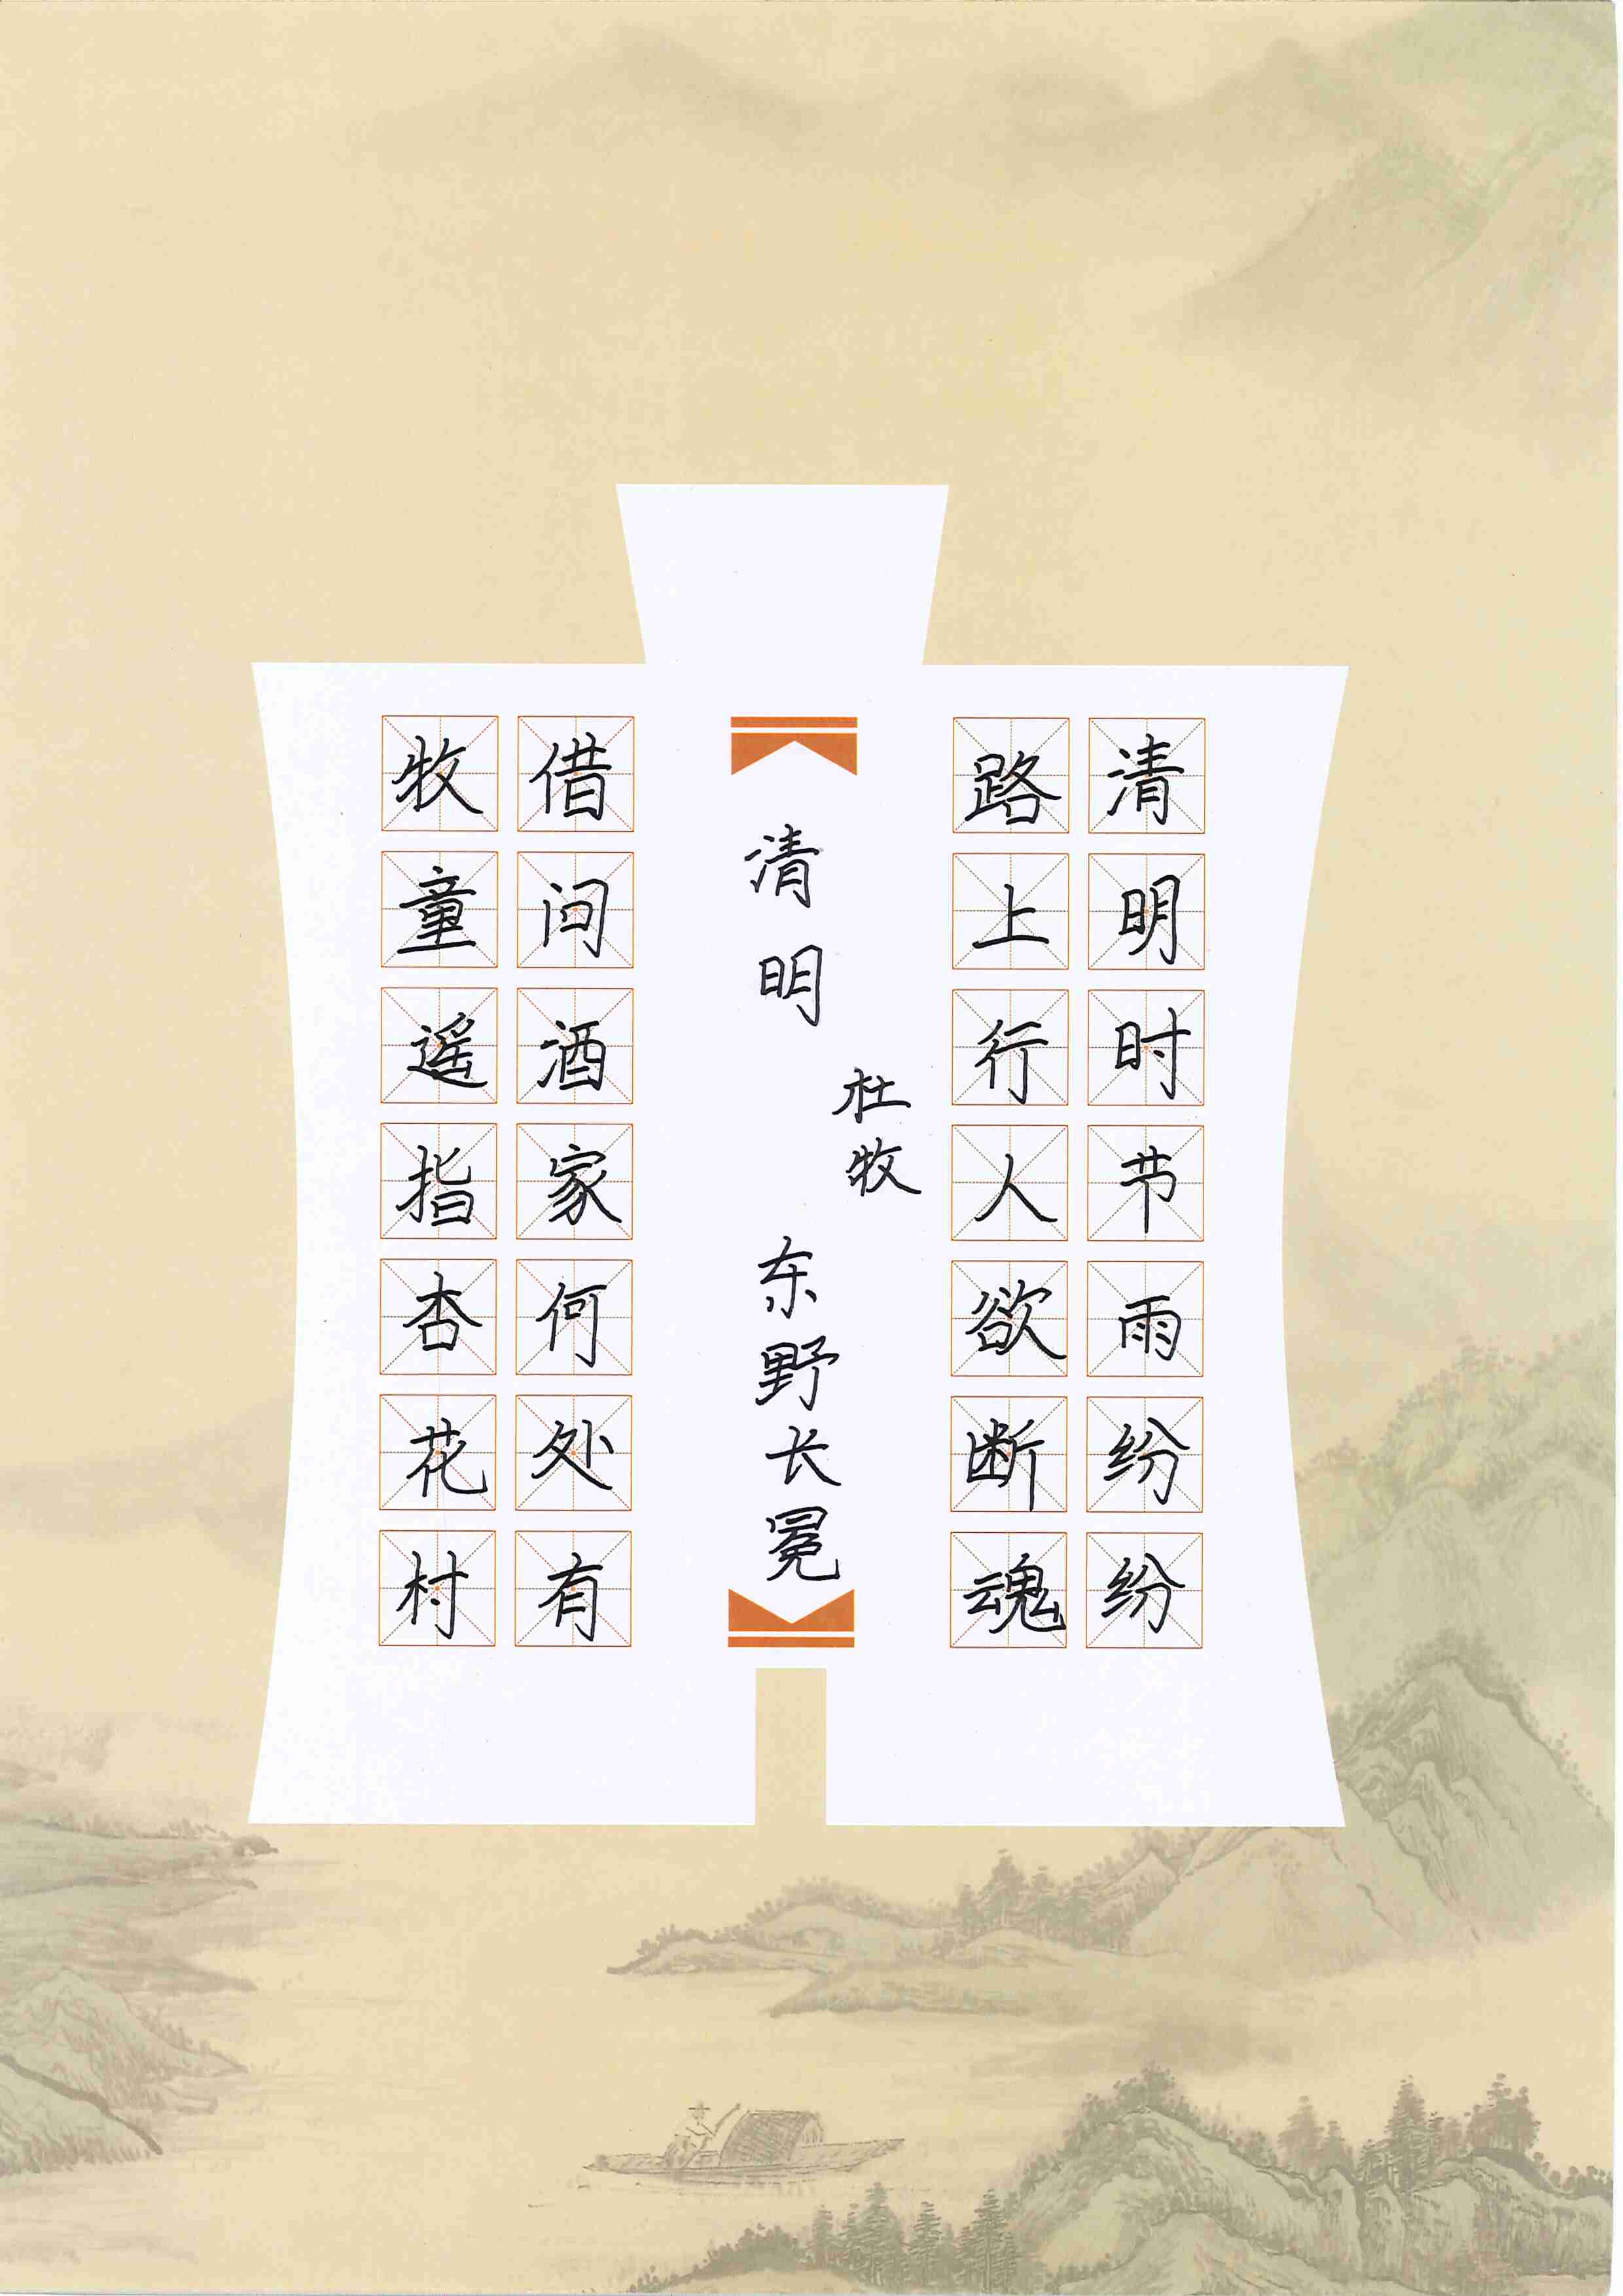 清明时节雨纷纷
路上行人欲断魂
清明
杜牧
东野长冕
借问酒家何处有
牧童遥指杏花村